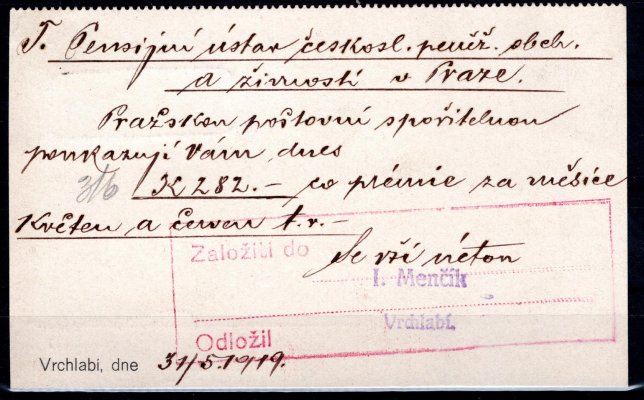 T. Pensijní ústav českosl. peněž. obch.
a živností v Praze.
Pražskou poštovní spořitelnou
poukazuji Vám dnes
3/6
K 282.- co prémie za měsíce
Květen a červen t.r.-
Založiti do
Se vší úctou
I. Menčík
Vrchlabí.
Odložil
Vrchlabí, dne 31/5.1919.